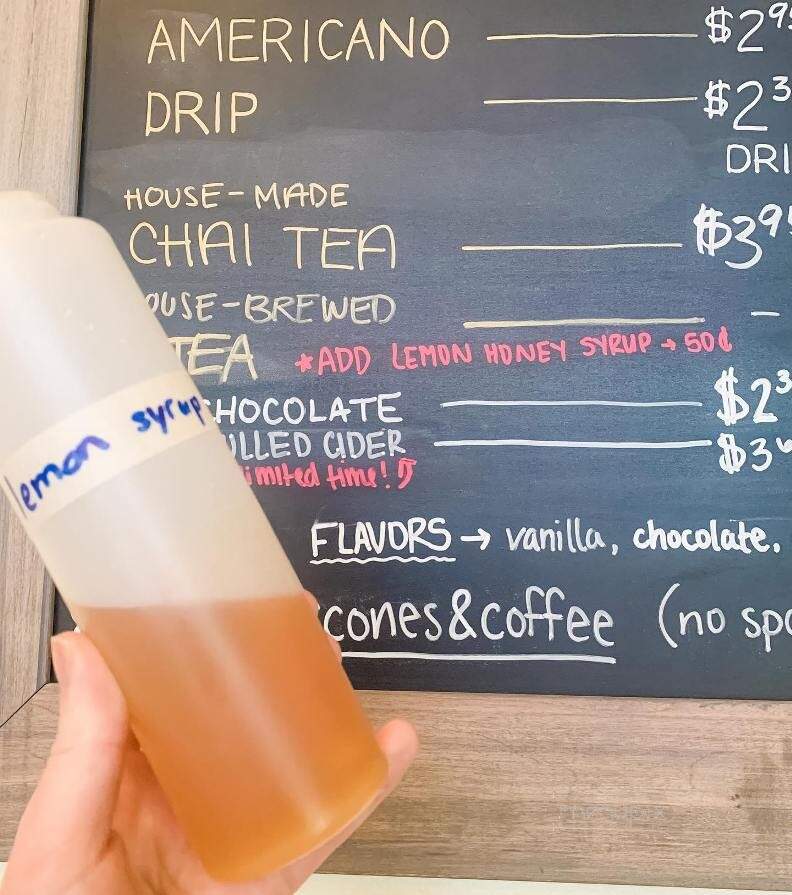 AMERICANO $2.95
DRIP $2.3
DRI
HOUSE-MADE
CHAI TEA $3.95
OUSE-BREWED -
TEA *ADD LEMON HONEY SYRUP → 50¢
HOCOLATE $2.3
LLED CIDER $3
imited time!
lemon syrup
FLAVORS → vanilla, chocolate,
cones&coffee (no spo